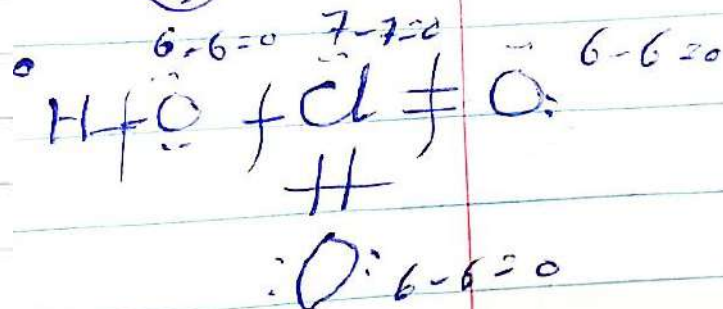 6-6=0 7-7=0 6-6=0
H-O-Cl=O:
:O: 6-6=0